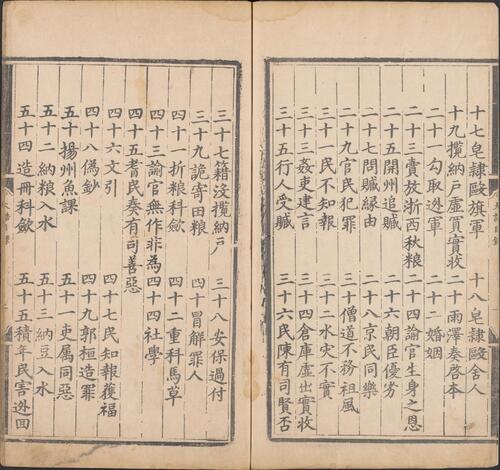 十七皂隸毆旗軍 十八皂隸毆舍人
十九攬納戶虛買實收 二十雨澤奏啓本
二十一勾取逃軍 二十二婚姻
二十三賣放浙西秋粮 二十四諭官生身之恩
二十五開州追贓 二十六朝臣優劣
二十七問贓緣由 二十八京民同樂
二十九官民犯罪 三十僧道不務祖風
三十一民不知報 三十二水灾不實
三十三姦吏建言 三十四倉庫虛出實收
三十五行人受贓 三十六民陳有司賢否
三十七籍没攬納戶 三十八安保過付
三十九詭寄田粮 四十冒解罪人
四十一折粮科歛 四十二重科馬草
四十三諭官無作非為 四十四社學
四十五耆民奏有司善惡
四十六文引 四十七民知報獲福
四十八偽鈔 四十九郭桓造罪
五十揚州魚課 五十一吏属同惡
五十二納粮入水 五十三納豆入水
五十四造冊科歛 五十五積年民害逃回